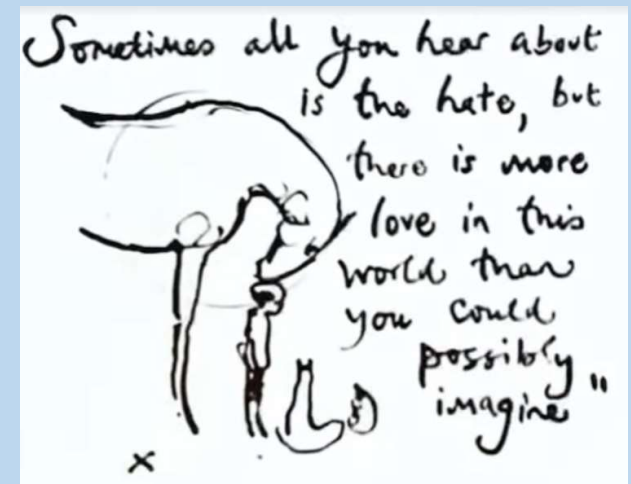 Sometimes all you hear about
is the hate, but
there is more
love in this
world than
you could
possibly
imagine"
x